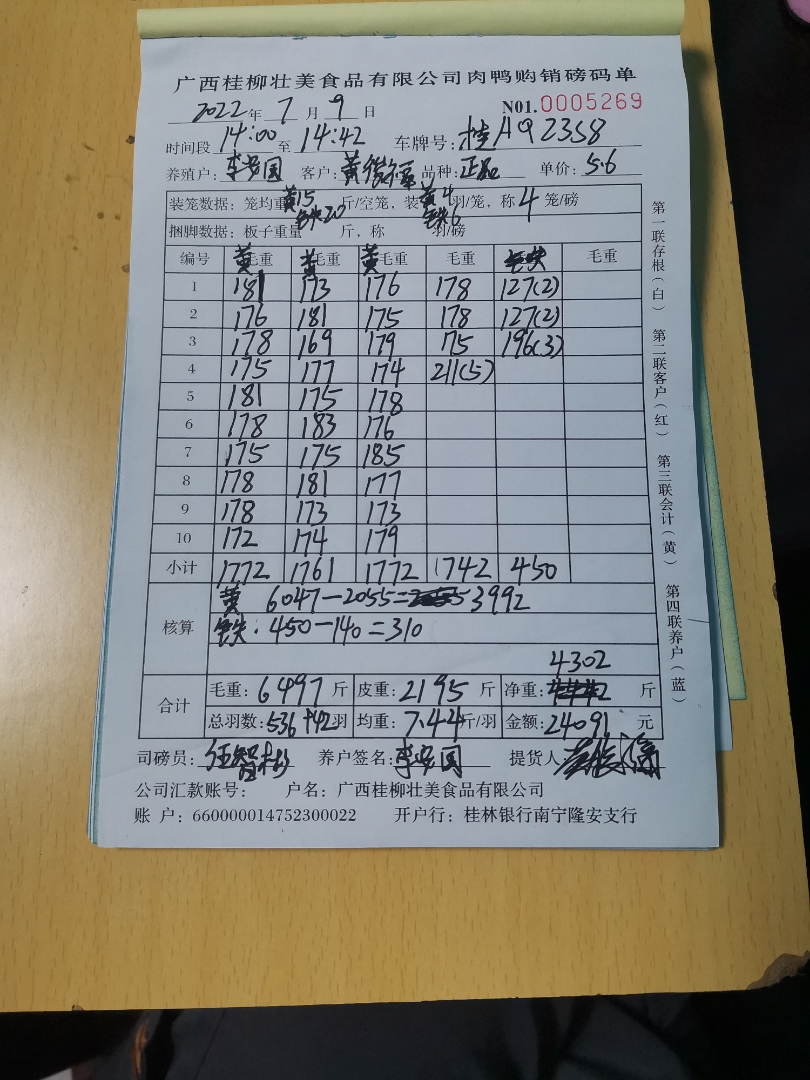 广西桂柳壮美食品有限公司肉鸭购销磅码单
2022年 7 月 9 日 N01.0005269
时间段 14:00 至 14:42 车牌号: 桂AQ2358
养殖户: 李安国 客户: 黄 品种: 正品 单价: 5.6
装笼数据: 笼均重 黄15 铁20 斤/空笼, 装 黄4 铁6 羽/笼, 称 4 笼/磅
捆脚数据: 板子重量 斤, 称 羽/磅
编号 黄毛重 黄毛重 黄毛重 毛重 铁 毛重
1 181 173 176 178 127(2)
2 176 181 175 178 127(2)
3 178 169 179 175 196(3)
4 175 177 174 211(5)
5 181 175 178
6 178 183 176
7 175 175 185
8 178 181 177
9 178 173 173
10 172 174 179
小计 1772 1761 1772 742 450
核算 黄 6047-2055= 3992
铁: 450-140=310
4302
合计 毛重: 6497 斤 皮重: 2195 斤 净重: 斤
总羽数: 536+42羽 均重: 7.44斤/羽 金额: 24091 元
司磅员: 养户签名: 李安国 提货人
公司汇款账号: 户名: 广西桂柳壮美食品有限公司
账 户: 660000014752300022 开户行: 桂林银行南宁隆安支行
第一联存根(白) 第二联客户(红) 第三联会计(黄) 第四联养户(蓝)